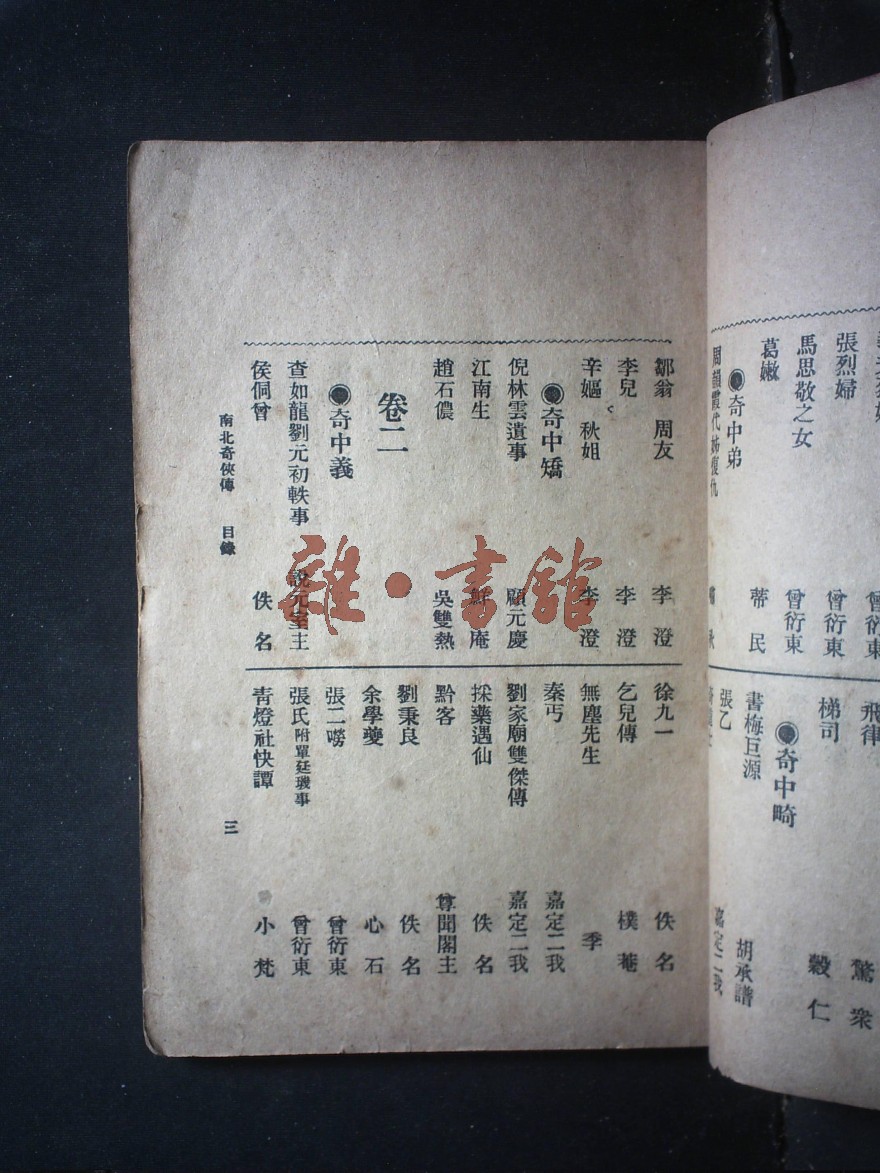 張烈婦 曾衍東
馬思敬之女 曾衍東
葛嫩 蒂民
●奇中弟
飛律 驚衆
梯司 穀仁
●奇中畸
書梅巨源 胡承譜
張乙 嘉定二我
鄒翁 周友 李澄
李兒 李澄
辛嫗 秋姐 李澄
●奇中矯
倪林雲遺事 顧元慶
江南生 鮮庵
趙石儂 吳雙熱
卷二
●奇中義
查如龍劉元初軼事 說元室主
侯侗曾 佚名
徐九一 佚名
乞兒傳 樸菴
無塵先生 季
秦丐 嘉定二我
劉家廟雙傑傳 嘉定二我
採藥遇仙 佚名
黔客 尊聞閣主
劉秉良 佚名
余學夔 心石
張二嘮 曾衍東
張氏附單廷璣事 曾衍東
青燈社快譚 小梵
南北奇俠傳 目錄
三
雜·書館